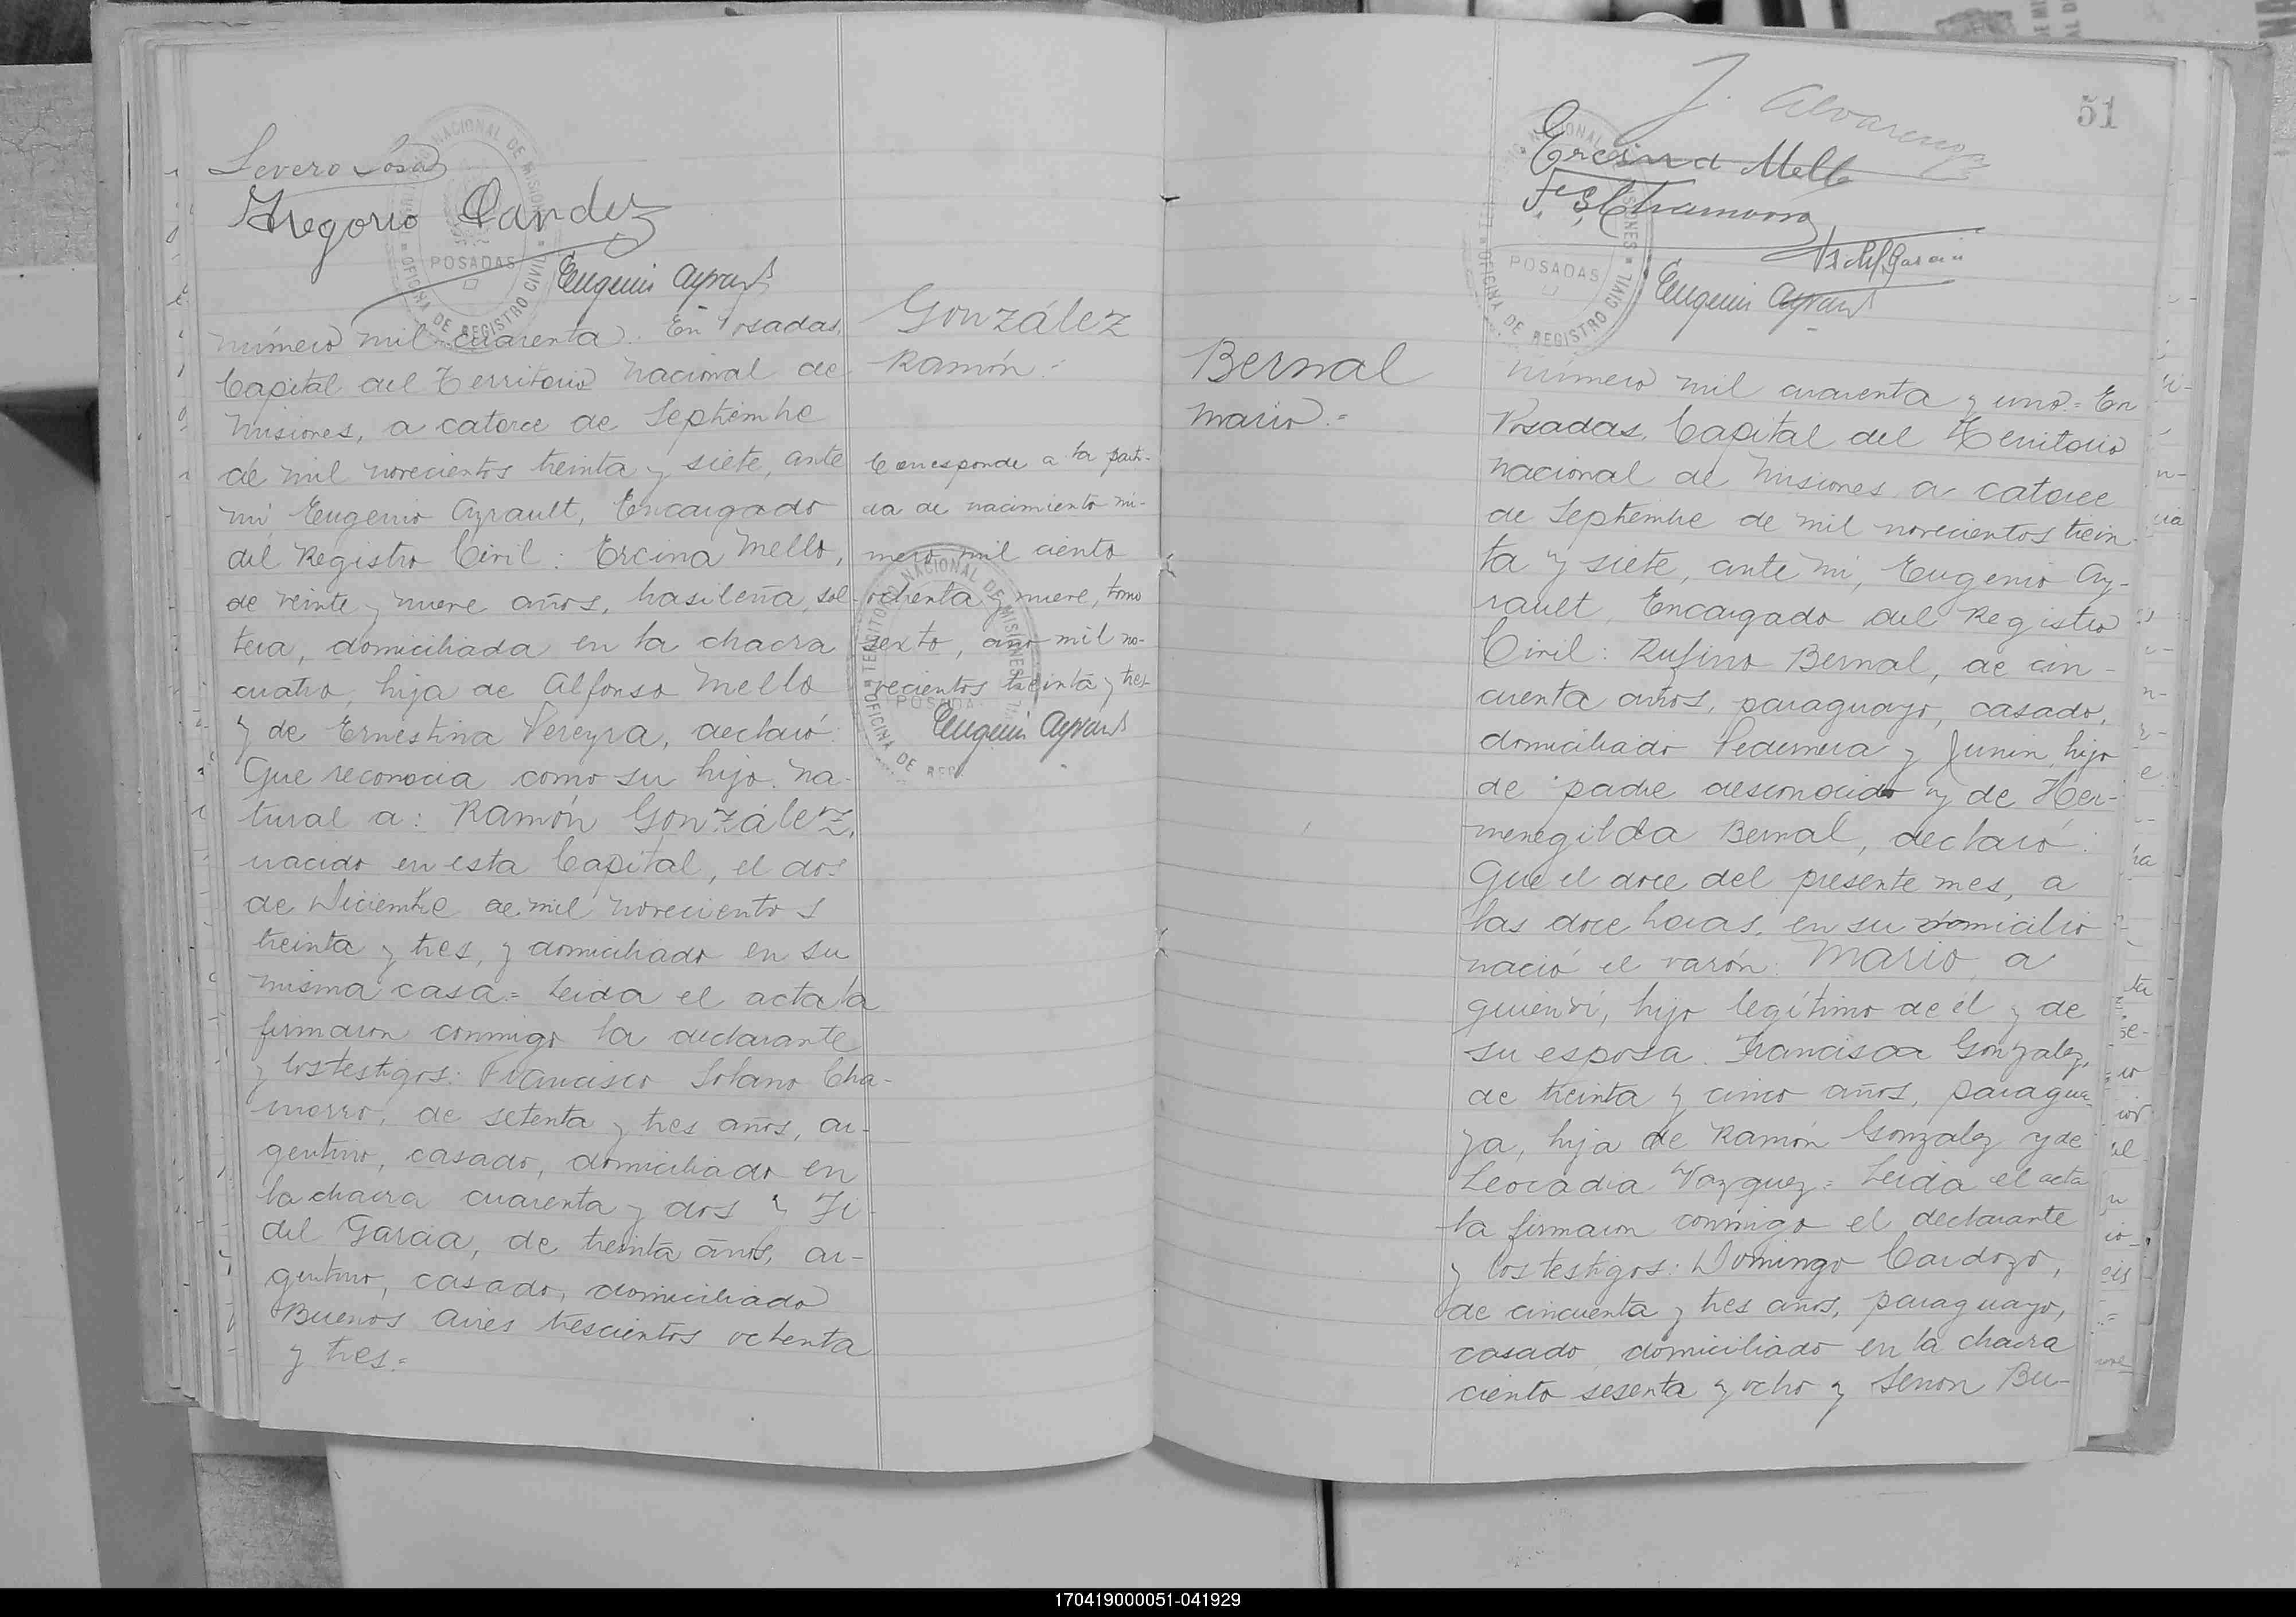 Severo Sosa
Gregorio
Eugenio Ayrault
Número mil cuarenta. En Posadas,
Capital del Territorio Nacional de
Misiones, a catorce de Septiembre
de mil novecientos treinta y siete, ante
mi Eugenio Ayrault, Encargado
del Registro Civil: Ercina Mello,
de veinte y nueve años, brasileña, sol-
tera, domiciliada en la chacra
cuatro, hija de Alfonso Mello
y de Ernestina Pereyra, declaró:
Que reconocia como su hijo na-
tural a: Ramón González,
nacido en esta Capital, el dos
de Diciembre de mil novecientos
treinta y tres, y domiciliado en su
misma casa.= Leida el acta la
firmaron conmigo la declarante
y los testigos: Francisco Solano Cha-
morro, de setenta y tres años, ar-
gentino, casado, domiciliado en
la chacra cuarenta y dos y Fi-
del Garcia, de treinta años, ar-
gentino, casado, domiciliado
Buenos Aires trescientos ochenta
y tres.=
González
Ramón.=
Corresponde a la parti-
da de nacimiento nú-
mero mil ciento
ochenta y nueve, tomo
sexto, año mil no-
vecientos treinta y tres
Eugenio Ayrault
TERRITORIO NACIONAL DE MISIONES
POSADAS
OFICINA DE REGISTRO CIVIL
51
J. Alvarenga
Ercina Mello
Fco S. Chamorro
Fidel Garcia
Eugenio Ayrault
POSADAS
OFICINA DE REGISTRO CIVIL
Bernal
Mario.=
Número mil cuarenta y uno.= En
Posadas, Capital del Territorio
Nacional de Misiones a catorce
de Septiembre de mil novecientos trein-
ta y siete, ante mi, Eugenio Ay-
rault, Encargado del Registro
Civil: Rufino Bernal, de cin-
cuenta años, paraguayo, casado,
domiciliado Pedernera y Junin, hijo
de padre desconocido y de Her-
menegilda Bernal, declaró:
Que el doce del presente mes, a
las doce horas, en su domicilio
nació el varón: Mario, a
quien ví, hijo legítimo de él y de
su esposa Francisca Gonzalez,
de treinta y cinco años, paragua-
ya, hija de Ramón Gonzalez y de
Leocadia Vazquez.= Leida el acta
la firmaron conmigo el declarante
y los testigos: Domingo Cardozo,
de cincuenta y tres años, paraguayo,
casado, domiciliado en la chacra
ciento sesenta y ocho y Senon Bu-
170419000051-041929